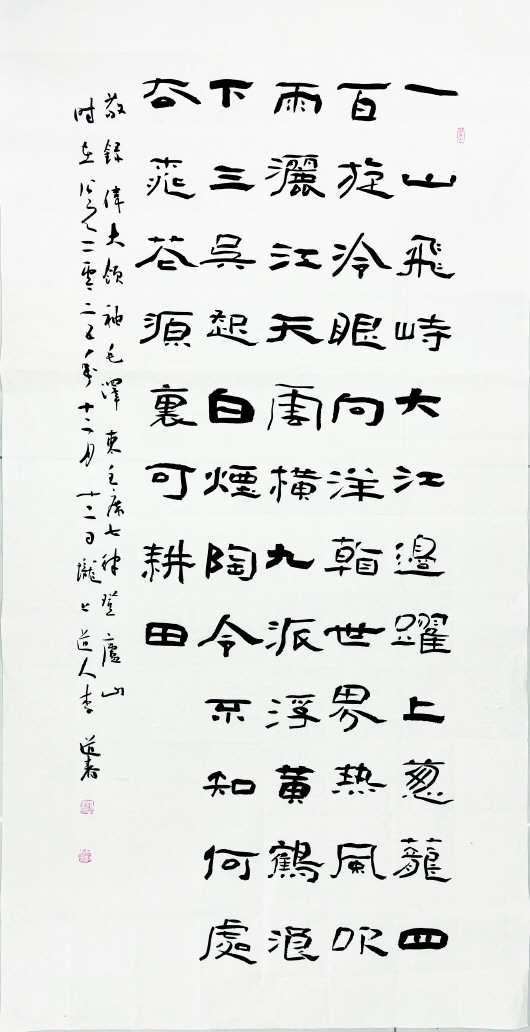 一山飛峙大江邊躍上葱蘢四
百旋冷眼向洋看世界热風吹
雨灑江天雲橫九派浮黃鶴浪
下三吳起白煙陶令不知何處
去桃花源裏可耕田
敬錄偉大領袖毛澤東主席七律登廬山
时在公元二零二五年十二月十二日隴上道人李道